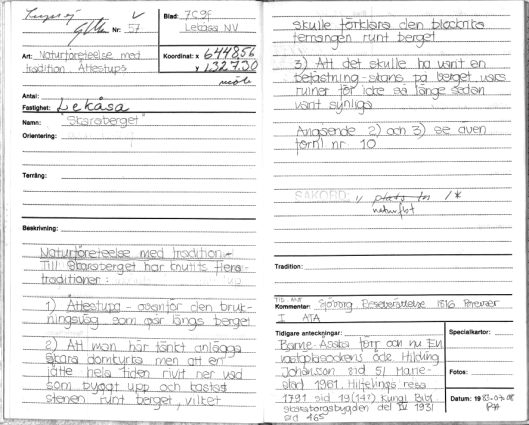 Nr: 57
Blad: 7C9f
Lekåsa NV
Art: Naturföreteelse med
tradition Ättestupa
Koordinat: x 644856
y 132730
Antal:
Fastighet: Lekåsa
Namn: "Skarsberget"
Orientering:
Terräng:
Beskrivning:
Naturföreteelse med tradition.
Till Skarsberget har knutits flera
traditioner:
1) Ättestupa - ovanför den bruk-
ningsväg som går längs berget
2) Att man här tänkt anlägga
Skara domkyrka men att en
jätte hela tiden rivit ner vad
som byggt upp och kastat
stenen runt berget, vilket
skulle förklara den blockrika
terrängen runt berget
3) Att det skulle ha varit en
befästning-skans på berget, vars
ruiner för icke så länge sedan
varit synliga
Angående 2) och 3) se även
fornl nr 10
SAKORD: plats
Tradition:
Kommentar: Sjöborg Reseberättelse 1816
I ATA
Tidigare anteckningar:
Barne-Åsaka förr och nu En
västgötasockens öde. Hilding
Johansson sid 51 Marie-
stad 1961. Hilfelings resa
1791 sid 19 (14? Kungl Bibl
Skaraborgsbygden del IV 1931
sid 465
Specialkartor:
Fotos:
Datum: 1983-07-08